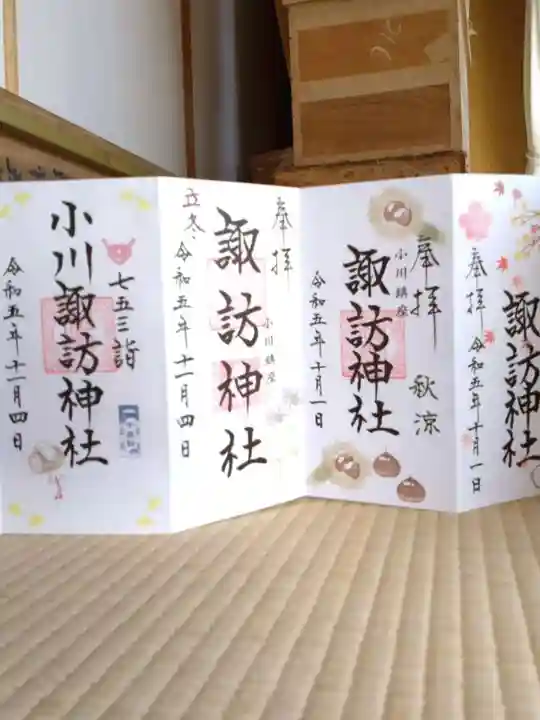 奉拝
諏訪神社
令和五年十月一日
奉拝
秋涼
小川鎮座
諏訪神社
令和五年十月一日
奉拝
小川鎮座
諏訪神社
立冬
令和五年十一月四日
七五三詣
小川諏訪神社
令和五年十一月四日